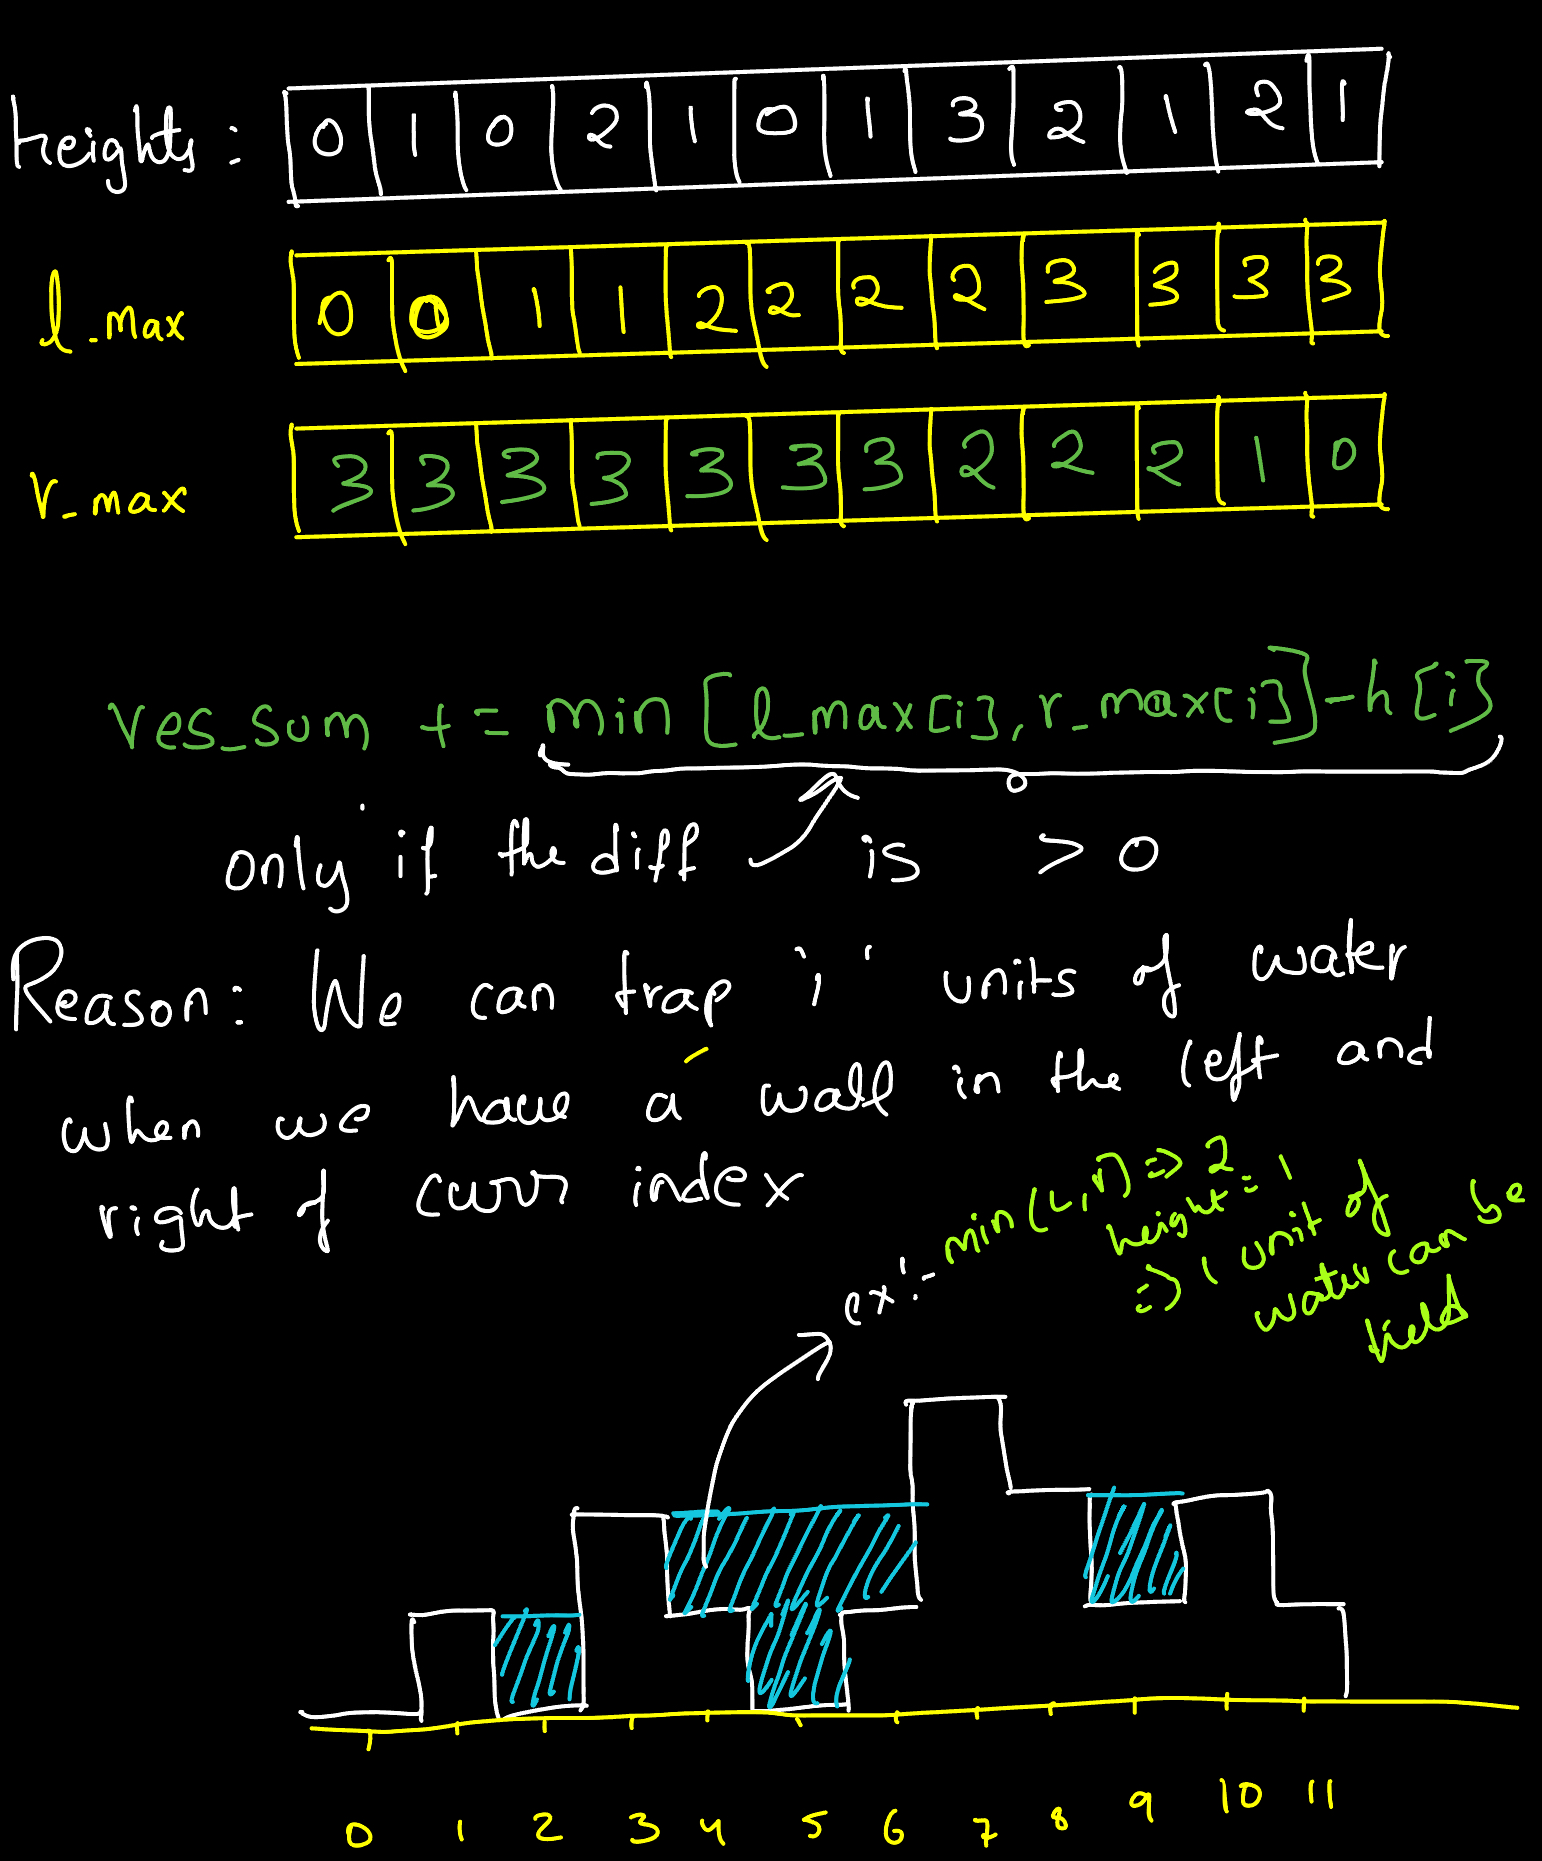 heights : 0 1 0 2 1 0 1 3 2 1 2 1
l_max 0 0 1 1 2 2 2 2 3 3 3 3
r_max 3 3 3 3 3 3 3 2 2 2 1 0
res_sum += min [l_max[i], r_max[i]] - h[i]
only if the diff is > 0
Reason: We can trap 'i' units of water
when we have a wall in the left and
right of curr index
ex:- min(L,r) => 2
height = 1
=> 1 unit of
water can be
held
0 1 2 3 4 5 6 7 8 9 10 11